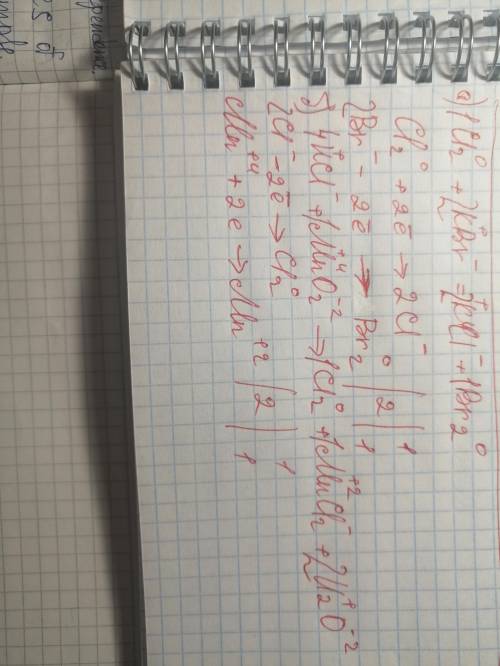 а) 1Cl₂⁰ + 2K⁺Br⁻ = 2K⁺Cl⁻ + 1Br₂⁰
Cl₂⁰ + 2ē → 2Cl⁻ | 1
2Br⁻ - 2ē → Br₂⁰ | 2 | 1
б) 4H⁺Cl⁻ + 1Mn⁺⁴O₂⁻² → 1Cl₂⁰ + 1Mn⁺²Cl₂⁻ + 2H₂⁺O⁻²
2Cl⁻ - 2ē → Cl₂⁰ | 1
Mn⁺⁴ + 2ē → Mn⁺² | 2 | 1